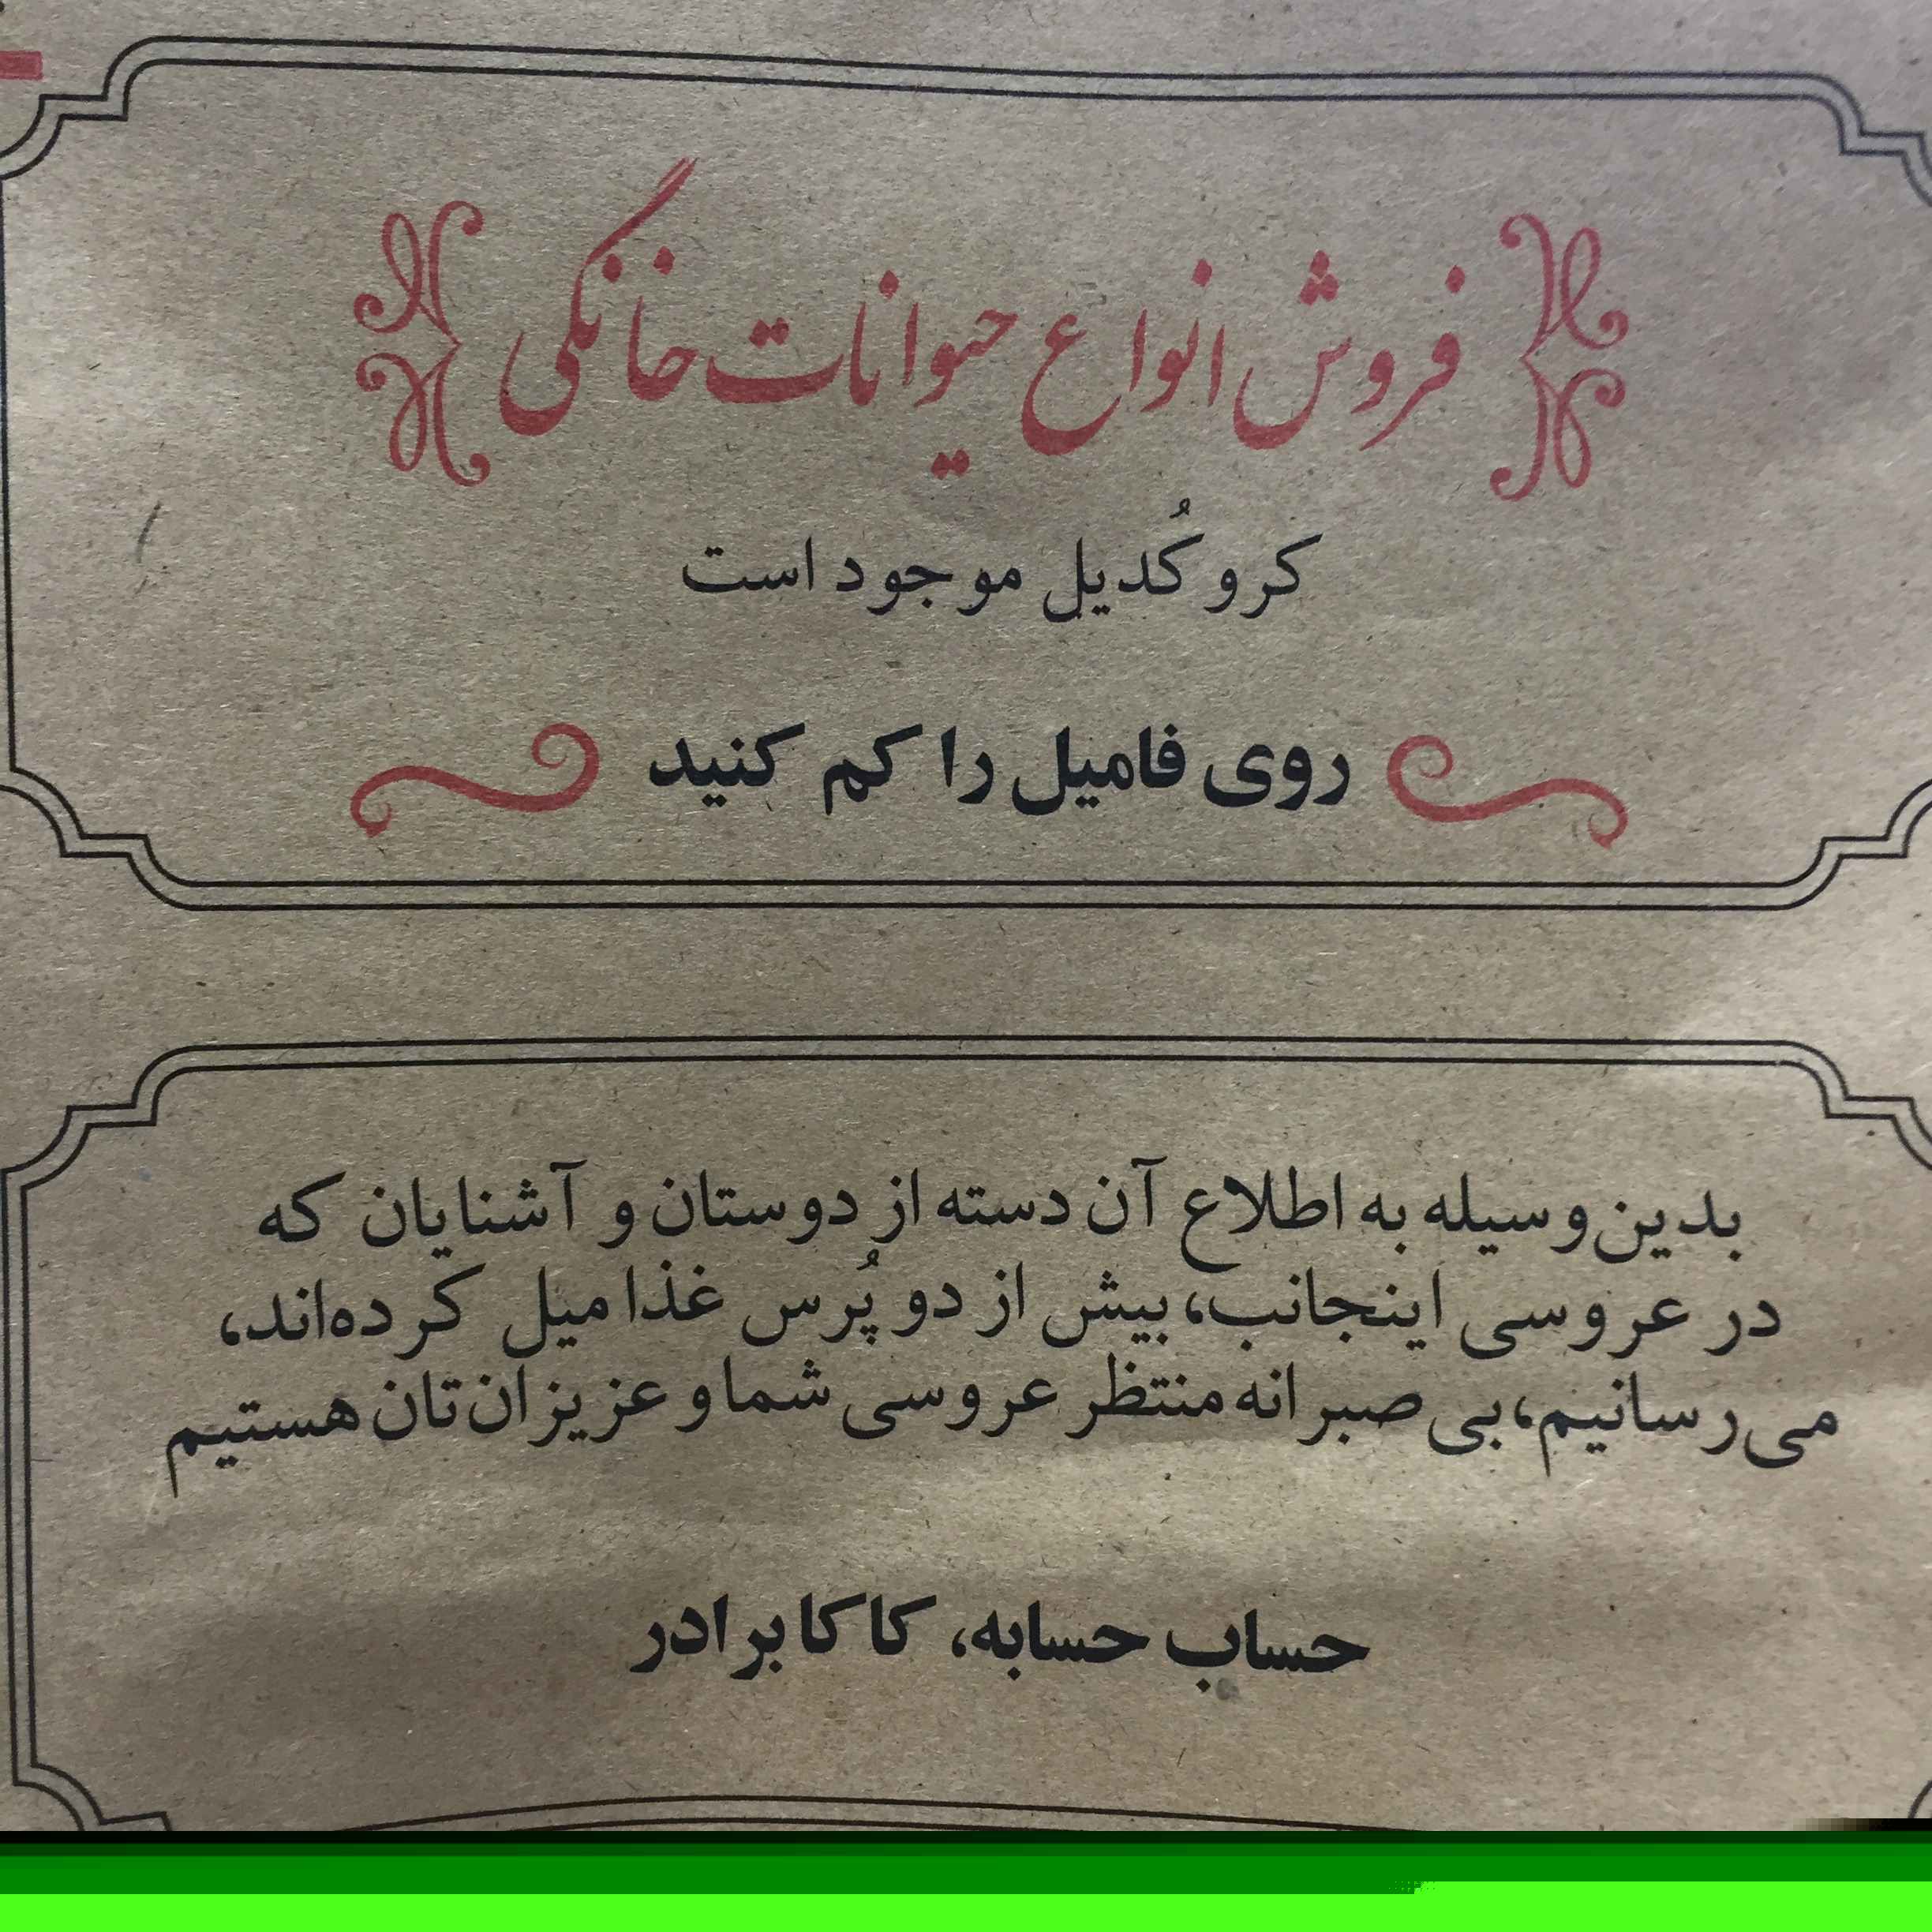 فروش انواع حیوانات خانگی
کروکُدیل موجود است
روی فامیل را کم کنید
بدین‌وسیله به اطلاع آن دسته از دوستان و آشنایان که
در عروسی اینجانب، بیش از دو پُرس غذا میل کرده‌اند،
می‌رسانیم، بی‌صبرانه منتظر عروسی شما و عزیزان‌تان هستیم
حساب حسابه، کاکا برادر